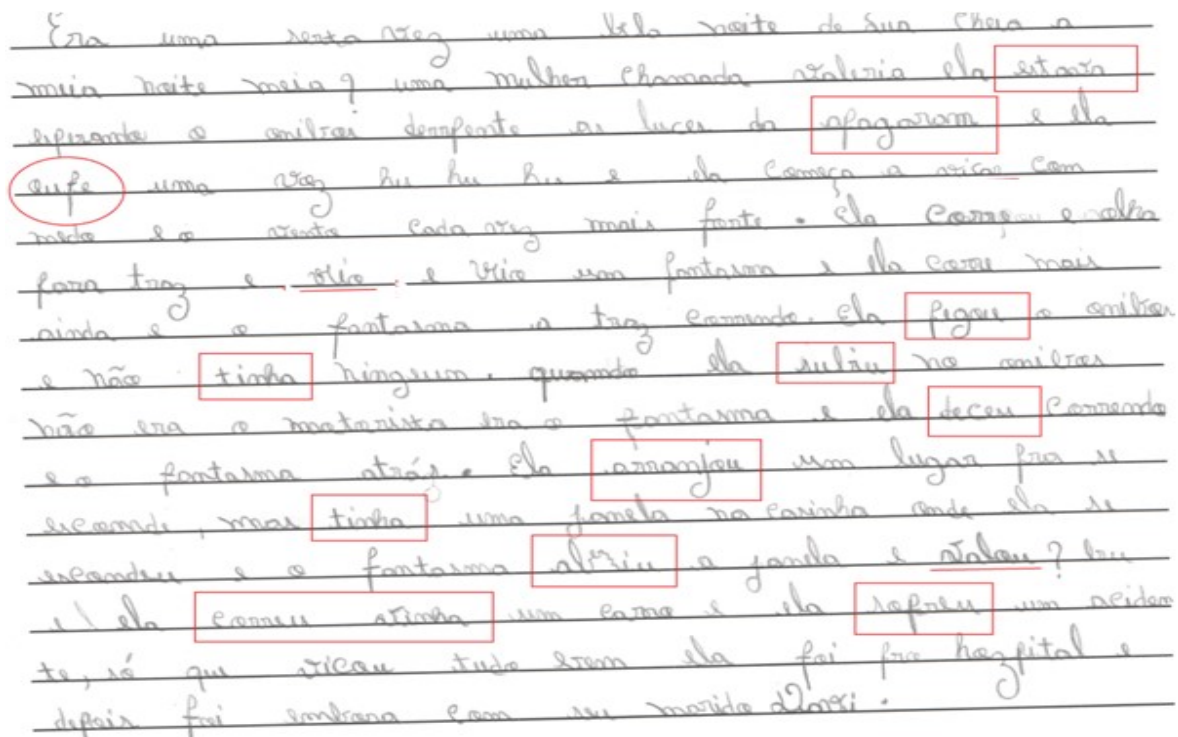 Era uma serta vez uma bela noite de Lua cheia a
meia noite meia? uma mulher chamada valeria ela estava
esperando o onibus derrepente as luces da apagaram e ela
oufe uma voz hu hu hu e ela começa a vicar com
medo e o vento cada vez mais forte. Ela correu e olha
para traz e vio e vio um fantasma e ela corre mais
ainda e o fantasma a traz correndo. Ela pegou o onibus
e não tinha ningum. quando ela subiu no onibus
não era o motorista era o fantasma e ela deceu correndo
e o fantasma atrás. Ela arranjou um lugar pra se
esconde, mas tinha uma janela na casinha onde ela se
escondeu e o fantasma abriu a janela e valou? bu
e ela correu vinha um carro e ela sofreu um aciden
te, só que vicou tudo bem ela foi pro hozpital e
depois foi embora com seu marido